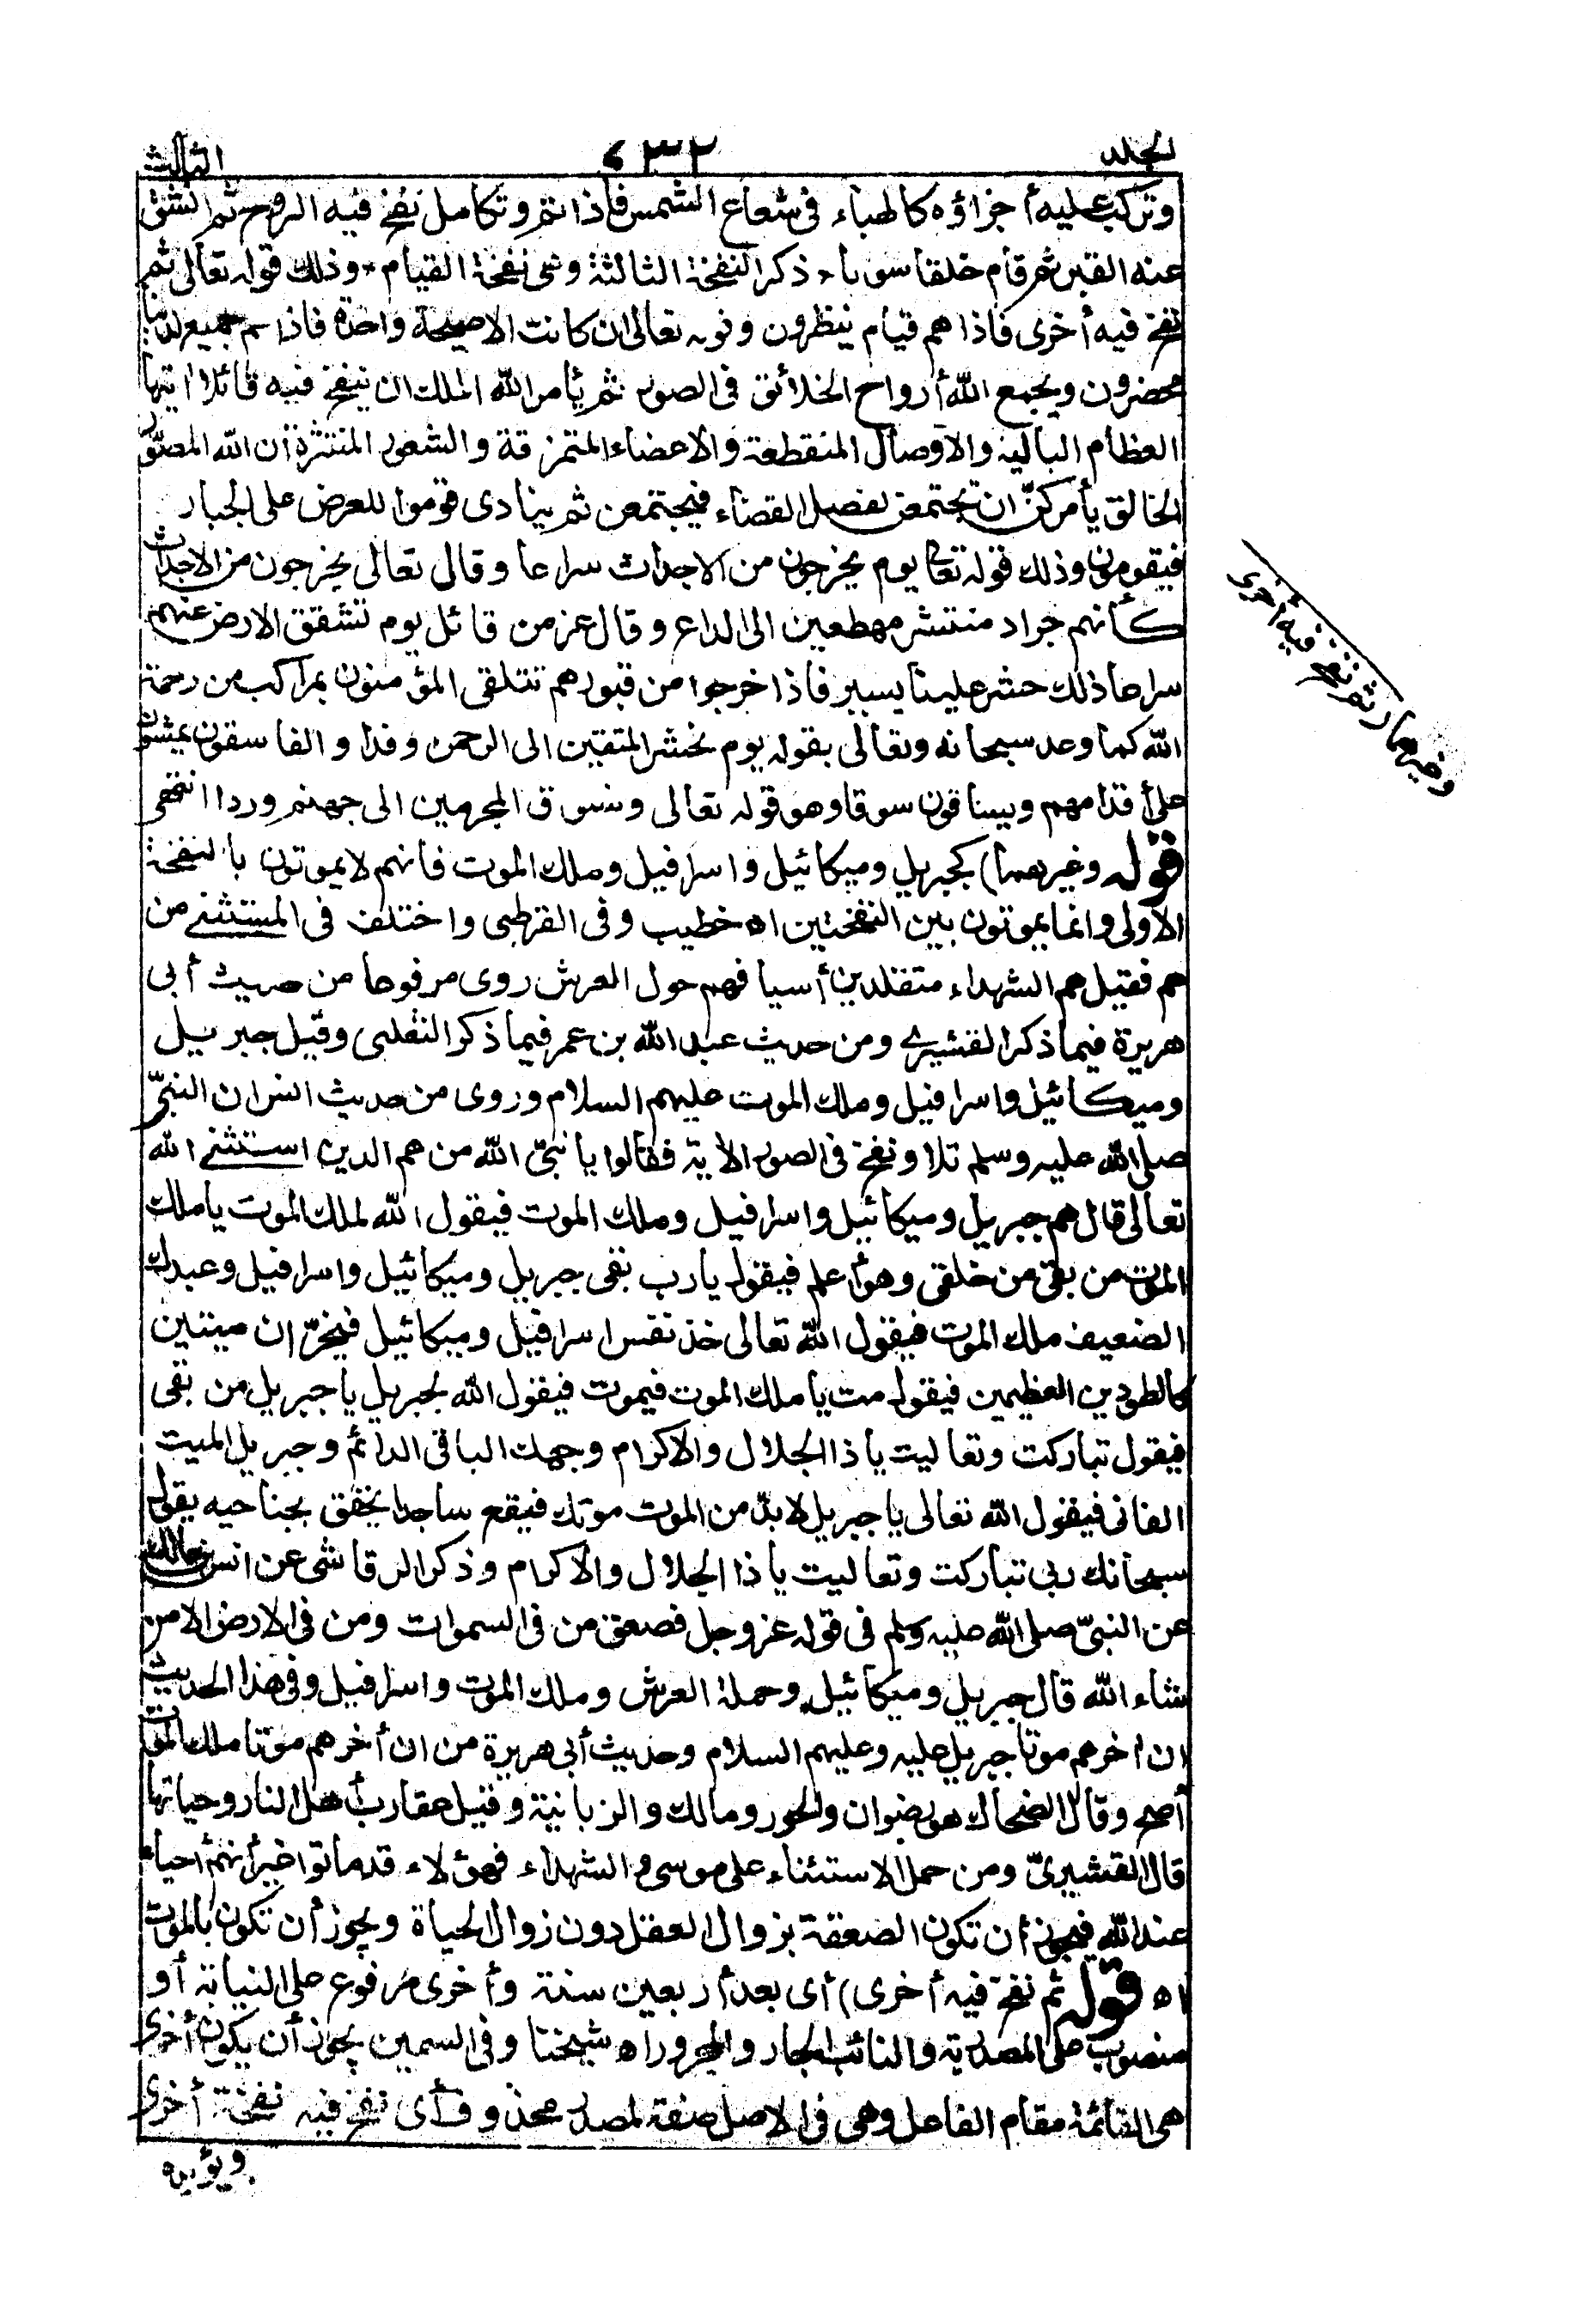 المجلد ٦٣٢ الثالث
وتركب عليه أجزاؤه كالهباء فى شعاع الشمس فاذا تم وتكامل نفخ فيه الروح ثم انشق
عنه القبر ثم قام خلقا سويا ذكر النفخة الثالثة وهى نفخة القيام وذلك قوله تعالى ثم
نفخ فيه أخرى فاذا هم قيام ينظرون وقوله تعالى ان كانت الا صيحة واحدة فاذا هم جميع لدينا
محضرون ويجمع الله أرواح الخلائق فى الصور ثم يأمر الله الملك ان ينفخ فيه قائلا ايتها
العظام البالية والاوصال المنقطعة والاعضاء المتمزقة والشعور المنتثرة أن الله المصور
الخالق يأمركن ان تجتمعن لفصل القضاء فيجتمعن ثم ينادى قوموا للعرض على الجبار
فيقومون وذلك قوله تعالى يوم يخرجون من الاجداث سراعا وقال تعالى يخرجون من الاجداث
كأنهم جراد منتشر مهطعين الى الداع وقال عز من قائل يوم تشقق الارض عنهم
سراعا ذلك حشر علينا يسير فاذا خرجوا من قبورهم تتلقى المؤمنون بمراكب من رحمة
الله كما وعد سبحانه وتعالى بقوله يوم نحشر المتقين الى الرحمن وفدا والفاسقون يمشون
على أقدامهم ويساقون سوقا وهو قوله تعالى ونسوق المجرمين الى جهنم وردا انتهى
قوله وغيرهما) كجبريل وميكائيل واسرافيل وملك الموت فانهم لا يموتون بالنفخة
الأولى وانما يموتون بين النفختين اه خطيب وفى القرطبى واختلف فى المستثنى من
هم فقيل هم الشهداء متقلدين أسيافهم حول العرش روى مرفوعا من حديث أبى
هريرة فيما ذكر القشيرى ومن حديث عبد الله بن عمر فيما ذكر الثعلبى وقيل جبريل
وميكائيل واسرافيل وملك الموت عليهم السلام وروى من حديث انس ان النبى
صلى الله عليه وسلم تلا ونفخ فى الصور الأية فقالوا يا نبى الله من هم الذين استثنى الله
تعالى قال هم جبريل وميكائيل واسرافيل وملك الموت فيقول الله لملك الموت يا ملك
الموت من بقى من خلقى وهو أعلم فيقول يا رب بقى جبريل وميكائيل واسرافيل وعبدك
الضعيف ملك الموت فيقول الله تعالى خذ نفس اسرافيل وميكائيل فيخران ميتين
كالطودين العظيمين فيقول مت يا ملك الموت فيموت فيقول الله لجبريل يا جبريل من بقى
فيقول تباركت وتعاليت ياذا الجلال والاكرام وجهك الباقى الدائم وجبريل الميت
الفانى فيقول الله تعالى يا جبريل لا بد من الموت موتك فيقع ساجدا يخفق بجناحيه يقول
سبحانك ربى تباركت وتعاليت ياذا الجلال والاكرام وذكر الرقاشى عن انس بن مالك
عن النبى صلى الله عليه وسلم فى قوله عز وجل فصعق من فى السموات ومن فى الارض الا من
شاء الله قال جبريل وميكائيل وحملة العرش وملك الموت واسرافيل وفى هذا الحديث
ان اخرهم موتا جبريل عليه وعليهم السلام وحديث أبى هريرة من ان أخرهم موتا ملك الموت
أصح وقال الضحاك هو رضوان والحور ومالك والزبانية وقيل عقارب أهل النار وحياتها
قال القشيرى ومن حمل الاستثناء على موسى و الشهداء فهؤلاء قد ماتوا غير أنهم احياء
عند الله فيجوز أن تكون الصعقة بزوال العقل دون زوال الحياة ويجوز أن تكون بالموت
اه قوله ثم نفخ فيه أخرى) أى بعد أربعين سنة وأخرى مرفوع على النيابة أو
منصوب على المصدرية والنائب الجار والمجرور اه شيخنا وفى السمين يجوز أن يكون أخرى
هى القائمة مقام الفاعل وهى فى الاصل صفة لمصدر محذوف أى نفخ فيه نفخة أخرى
ويؤيده
ثم نفخ فيه أخرى